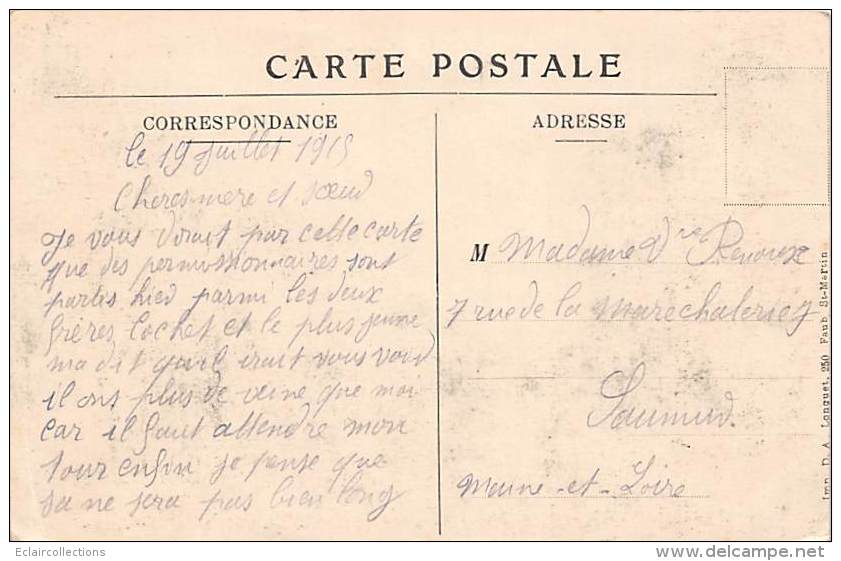 CARTE POSTALE
CORRESPONDANCE
le 19 Juillet 1915
Cheres mere et sœur
Je vous dirait par cette carte
que des permissionnaires sont
partis hier parmi les deux
frères Cochet et le plus jeune
ma dit quil irait vous voir
il ons plus de veine que moi
car il faut attendre mon
tour enfin je pense que
sa ne sera pas bien long
ADRESSE
M Madame Vve Renoux
7 rue de la Marechalerie
Saumur
Maine-et-Loire
Imp. D.A. Longuet, 250 Faub. St-Martin
Eclaircollections
www.delcampe.net